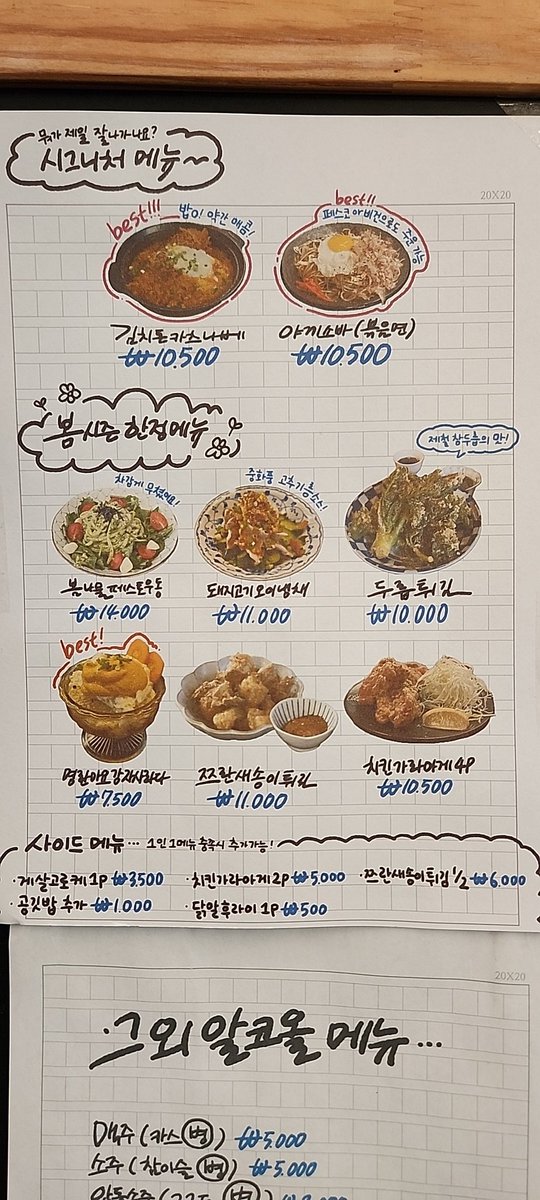 뭐가 제일 잘나가나요?
시그니처 메뉴~
20X20
best!!!
밥이 약간 매콤!
best!!
페스코 아비건으로도 주문 가능
김치돈카츠나베
₩10.500
야끼소바(볶음면)
₩10.500
봄시즌 한정메뉴
제철 참두릅의 맛!
차갑게 무쳤어요!
중화풍 고추기름소스!
봄나물페스토우동
₩14.000
돼지고기오이냉채
₩11.000
두릅튀김
₩10.000
best!
명란마요감자사라다
₩7.500
쯔란새송이튀김
₩11.000
치킨가라아게4P
₩10.500
사이드 메뉴... 1인 1메뉴 충족시 추가가능!
·게살고로케 1P ₩3.500
·치킨가라아게 2P ₩5.000
·쯔란새송이튀김 1/2 ₩6.000
·공깃밥 추가 ₩1.000
·닭알후라이 1P ₩500
20X20
·그외 알코올 메뉴...
맥주 (카스 병) ₩5.000
소주 (참이슬 병) ₩5.000